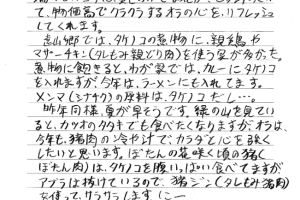 て、物価高でクラクラするオラの心を、リフレッシュ
してくれます。
遠山郷では、タケノコの煮物に、親鶏や
マザーチキン(タレもみ親どり肉)を使う家が多かった。
煮物に飽きると、わが家では、カレーにタケノコ
を入れますが、今年は、ラーメンにも入れてます。
メンマ(シナチク)の原料は、タケノコだしー。
昨年同様、魚が辛そうです。緑の山を見てい
ると、カツオのタタキでも食べたくなりますが、オラは、
今年も、猪肉の冷やけで、カラダと心を強く
したいと思います。ぼたんの花咲く頃の猪(
ぼたん肉)は、タケノコを腹いっぱい食べてますが
アブラは抜けているので、猪ジン(タレもみ猪肉)
を使って、サラサラします(ニー